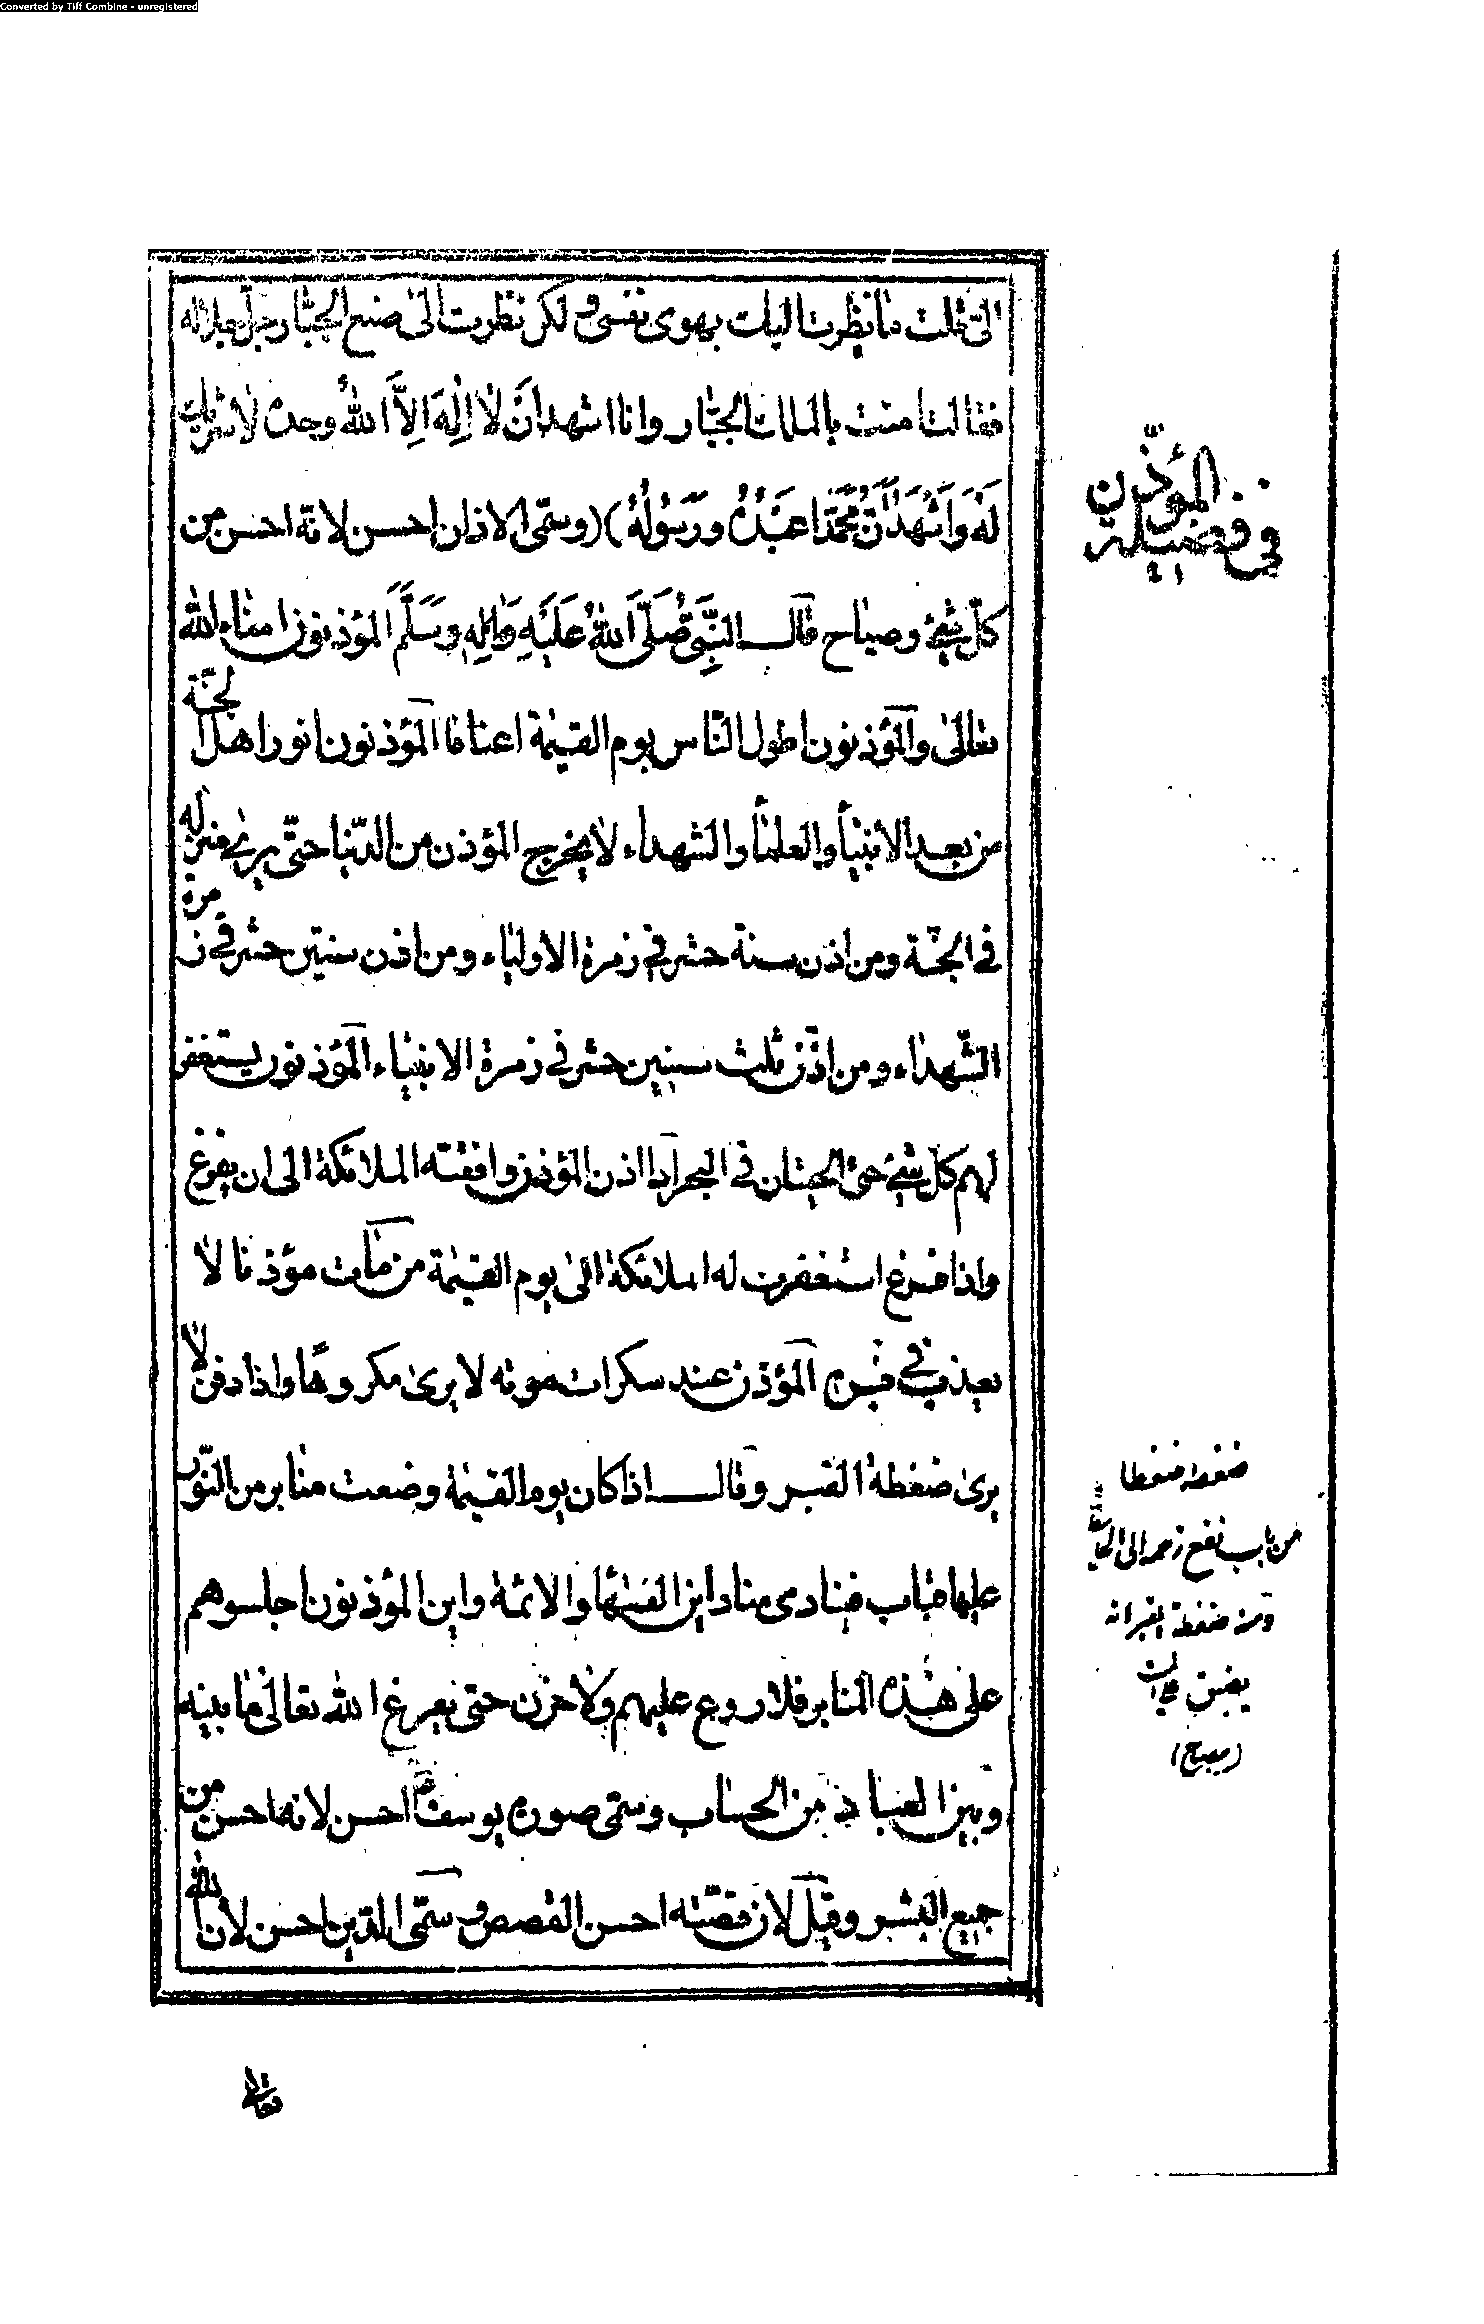 Converted by Tiff Combine - unregistered
الىّ قلت ما نظرت اليك بهوى نفسى ولكن نظرت الى صنع الجبّار جلّ جلاله
فقالت امنت بالملك الجبّار وانا اشهد انّ لا اِلٰهَ اِلاَّ اللهُ وحده لا شريك
لَهُ وَاَشْهَدُ اَنَّ مُحَمَّدًا عَبْدُهُ وَرَسُولُهُ) (وسمّى الاذان احسن لانه احسن من
كلّ شئ وصياح قال النَّبِىُّ صَلَّى اللهُ عَلَيْهِ وَاٰلِهِ وَسَلَّمَ المؤذنون امناء الله
تعالى والمؤذنون اطول النّاس يوم القيٰمة اعناقا المؤذنون انور اهل الجنّة
من بعد الانبيآ والعلمآ والشهداء لا يخرج المؤذن من الدّنيا حتّى يرى منزله
فى الجنّة ومن اذن سنة حشر فى زمرة الاولياء ومن اذن سنتين حشر فى زمرة
الشّهداء ومن اذّن ثلث سنين حشر فى زمرة الانبياء المؤذنون يستغفر
لهم كل شئ حتى الحيتان فى البحر اذا اذن المؤذن وافقته الملائكة الى ان يفرغ
واذا فرغ استغفرت له الملائكة الى يوم القيٰمة من مات مؤذنا لا
يعذب فى قبره المؤذن عند سكرات موته لا يرى مكروهًا واذا دفن لا
يرى ضغطة القبر وقال اذا كان يوم القيٰمة وضعت منابر من النّور
عليها قباب فينادى مناد اين الفقهآ والائمة واين المؤذنون اجلسوهم
على هذه المنابر فلا روع عليهم ولا حزن حتى يفرغ الله تعالى ما بينه
وبين العباد من الحساب وسمّى صورة يوسف احسن لانه احسن من
جميع البشر وقيل لان قصّته احسن القصص وسمّى الدّين احسن لان الله
تعالى
فى فضيلة المؤذّن
ضغطه ضغطا
من باب نفع زحمه الى الحائط
ومنه ضغطة القبر لانه
يضيق على
(مصباح)